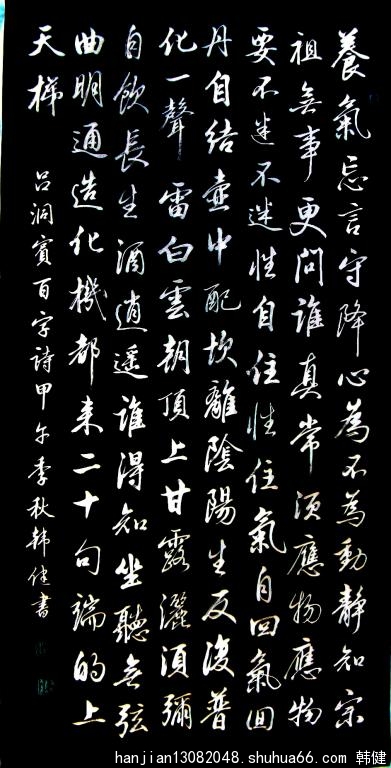 養氣忘言守降心為不為動靜知宗
祖無事更問誰真常須應物應物
要不迷不迷性自住性住氣自回氣回
丹自結壺中配坎離陰陽生反復普
化一聲雷白雲朝頂上甘露灑須彌
自飲長生酒逍遙誰得知坐聽無弦
曲明通造化機都來二十句端的上
天梯
呂洞賓百字詩甲午季秋韩健書
hanjian13082048.shuhua66.com 韩健